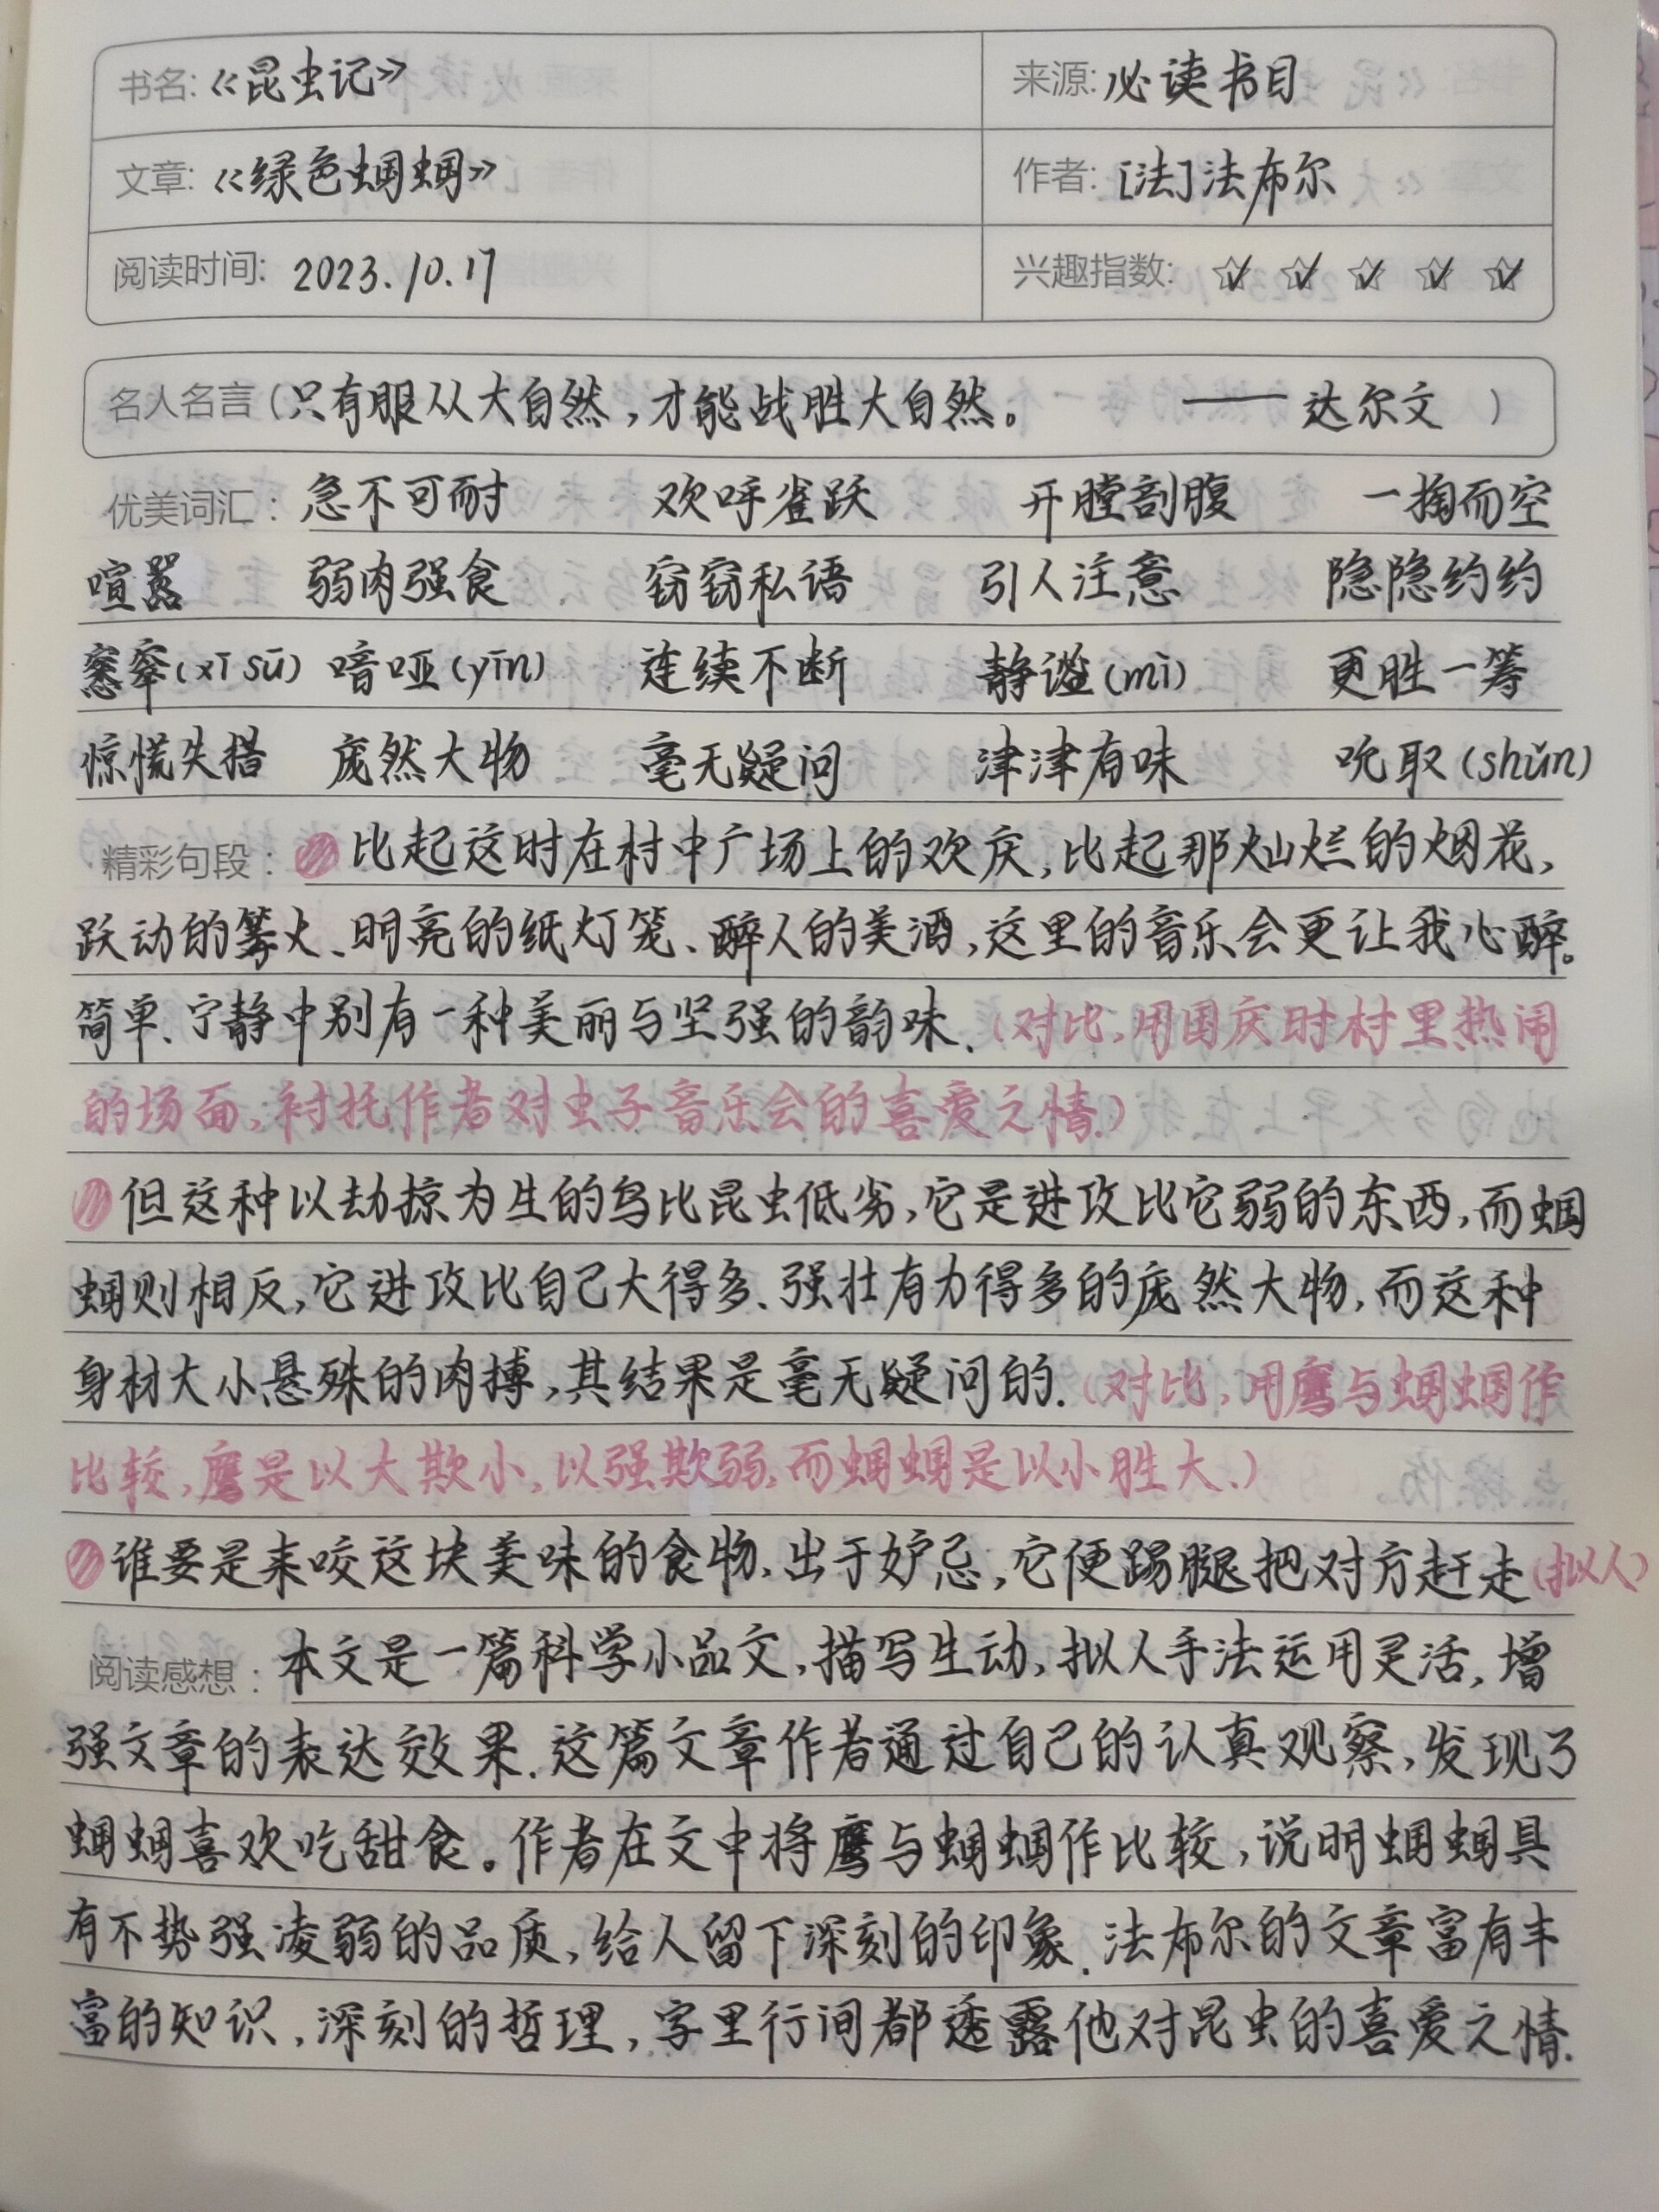 书名:《昆虫记》 来源:必读书目
文章:《绿色蝈蝈》 作者:[法]法布尔
阅读时间: 2023.10.17 兴趣指数: ☆✓ ☆✓ ☆✓ ☆✓ ☆✓
名人名言(只有服从大自然,才能战胜大自然。 ——达尔文 )
优美词汇: 急不可耐 欢呼雀跃 开膛剖腹 一掏而空
喧嚣 弱肉强食 窃窃私语 引人注意 隐隐约约
窸窣(xī sū) 喑哑(yīn) 连续不断 静谧(mì) 更胜一筹
惊慌失措 庞然大物 毫无疑问 津津有味 吮取(shǔn)
精彩句段: 比起这时在村中广场上的欢庆,比起那灿烂的烟花,
跃动的篝火、明亮的纸灯笼、醉人的美酒,这里的音乐会更让我心醉。
简单、宁静中别有一种美丽与坚强的韵味.(对比,用国庆时村里热闹
的场面,衬托作者对虫子音乐会的喜爱之情.)
但这种以劫掠为生的鸟比昆虫低劣,它是进攻比它弱的东西,而蝈
蝈则相反,它进攻比自己大得多、强壮有力得多的庞然大物,而这种
身材大小悬殊的肉搏,其结果是毫无疑问的.(对比,用鹰与蝈蝈作
比较,鹰是以大欺小,以强欺弱,而蝈蝈是以小胜大.)
谁要是来咬这块美味的食物,出于妒忌,它便踢腿把对方赶走(拟人)
阅读感想: 本文是一篇科学小品文,描写生动,拟人手法运用灵活,增
强文章的表达效果.这篇文章作者通过自己的认真观察,发现了
蝈蝈喜欢吃甜食。作者在文中将鹰与蝈蝈作比较,说明蝈蝈具
有不势强凌弱的品质,给人留下深刻的印象.法布尔的文章富有丰
富的知识,深刻的哲理,字里行间都透露他对昆虫的喜爱之情.